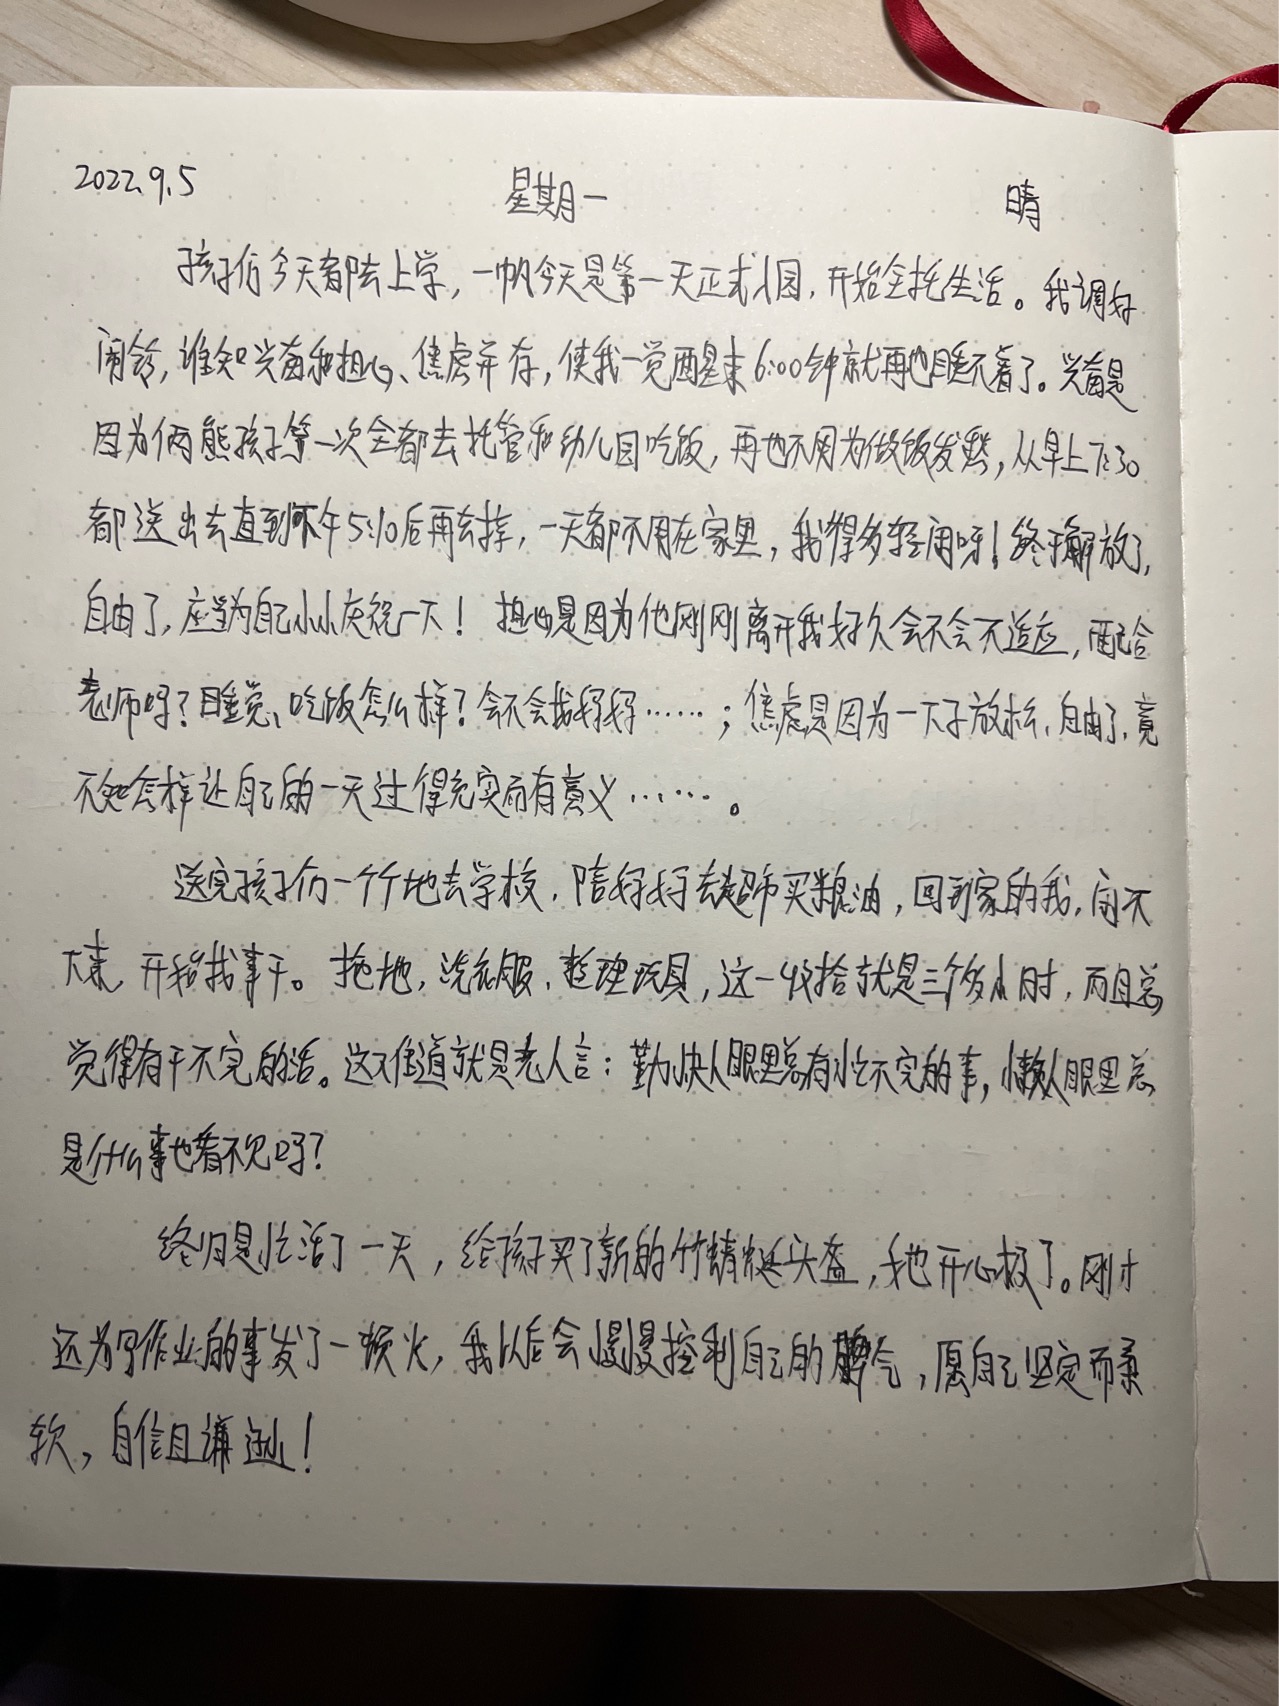 2022.9.5 星期一 晴
孩子们今天都去上学，一帆今天是第一天正式入园，开始全托生活。我调好
闹铃，谁知兴奋和担心、焦虑并存，使我一觉醒来6:00钟就再也睡不着了。兴奋是
因为俩熊孩子第一次全都去托管和幼儿园吃饭，再也不用为做饭发愁，从早上7:30
都送出去直到下午5:10后再去接，一天都不用在家里，我得多轻闲呀！终于解放了，
自由了，应当为自己小小庆祝一下！担心是因为他刚刚离开我好久会不会不适应，配合
老师吗？睡觉、吃饭怎么样？会不会找好好……；焦虑是因为一下子放松，自由了，竟
不知怎样让自己的一天过得充实而有意义……。
送完孩子们一个个地去学校，陪好好去超市买粮油，回到家的我，闲不
下来，开始找事干。拖地，洗衣服，整理玩具，这一收拾就是三个多小时，而且总
觉得有干不完的活。这不难道就是老人言：勤快人眼里总有忙不完的事，懒人眼里总
是什么事也看不见吗？
终归是忙活了一天，给孩子买了新的竹蜻蜓头盔，我也开心极了。刚才
还为写作业的事发了一顿火，我以后会慢慢控制自己的脾气，愿自己坚定而柔
软，自信且谦逊！